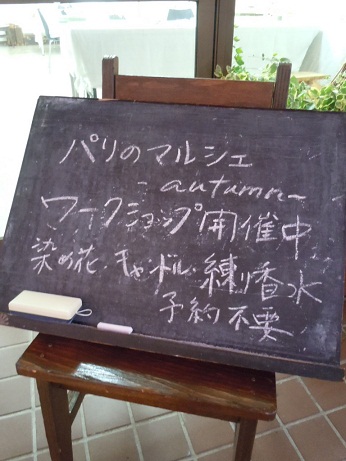 パリのマルシェ
-autumn-
ワークショップ開催中
染め花・キャンドル・練り香水
予約不要